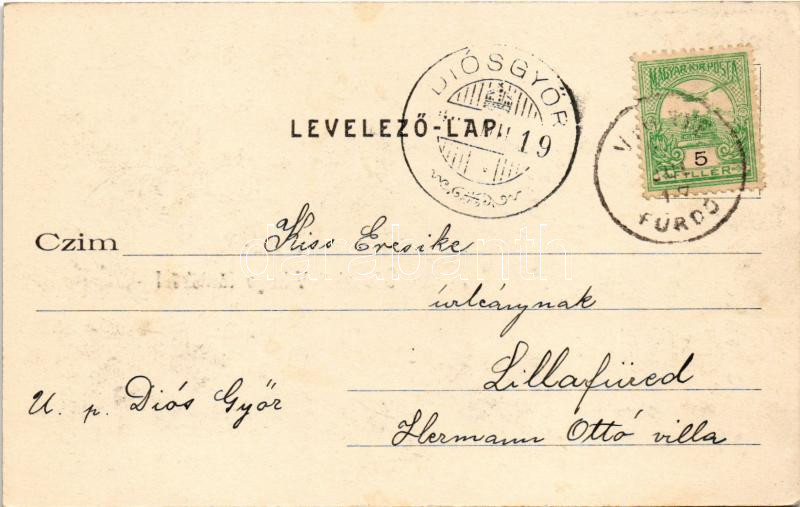 MAGYAR KIR. POSTA
5
FILLÉR
FÜRDŐ
DIÓSGYŐR
19
LEVELEZŐ-LAP
Czim
Kiss Ercsike
darabanth
úrleánynak
Lillafüred
U. p. Diós Győr
Hermann Ottó villa